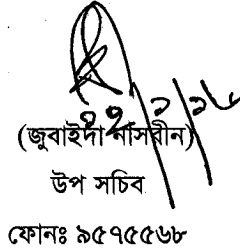 (জুবাইদা নাসরীন)
উপ সচিব
ফোনঃ ৯৫৭৫৫৬৮